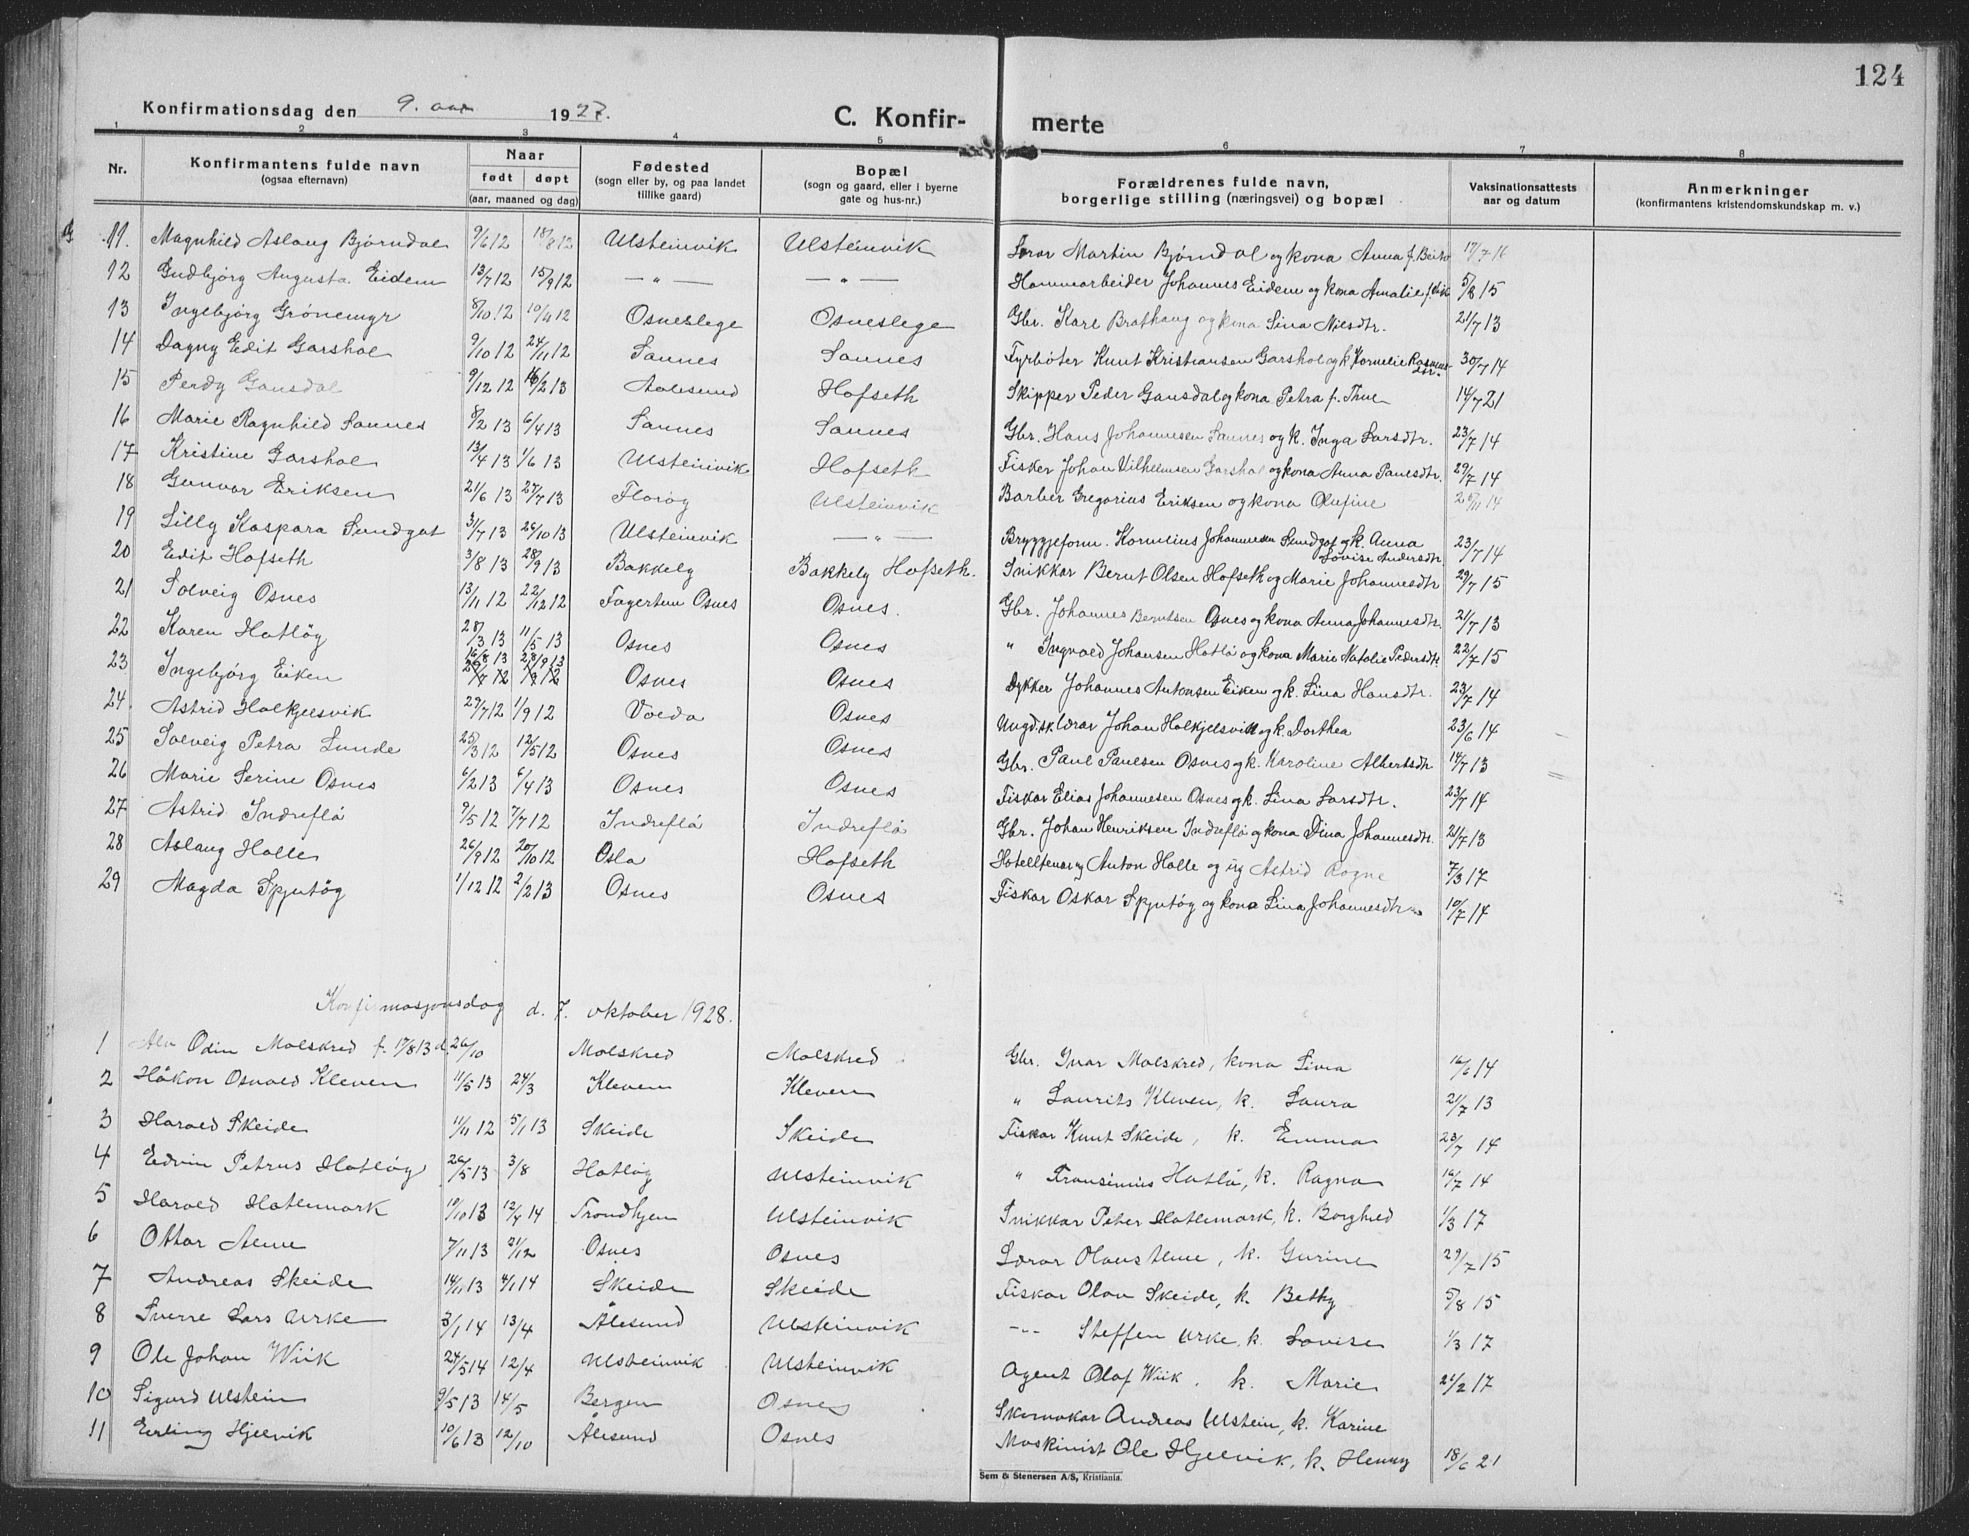 124
Konfirmationsdag den 9. 1927.
C. Konfir- merte
1 2 3 4 5 6 7 8
Nr. Konfirmantens fulde navn (ogsaa efternavn) Naar født døpt (aar, maaned og dag) Fødested (sogn eller by, og paa landet tillike gaard) Bopæl (sogn og gaard, eller i byerne gate og hus-nr.) Forældrenes fulde navn, borgerlige stilling (næringsvei) og bopæl Vaksinationsattests aar og datum Anmerkninger (konfirmantens kristendomskundskap m. v.)
11. Magnhild Aslaug Bjørndal 9/6 12 18/8 12 Ulsteinvik Ulsteinvik Martin Bjørndal og kona Anna f. 17/7
12 Gudbjørg Augusta Eidem 13/7 12 15/9 12 — " — — " — Johannes Eidem og kona Amalie 5/8 15
13 Ingebjørg Grönemyr 8/10 12 10/11 12 Osneslege Osneslege Gbr. Karl Brathaug og kona Lina Nilsdtr. 21/7 13
14 Dagny Edit Garshol 9/10 12 24/11 12 Sannes Sannes Fyrbøter Knut Kristiansen Garshol og k. Kornelie Rasmusdtr. 30/7 14
15 Perdy Gausdal 9/12 12 2 13 Aalesund Hofseth Skipper Peder Gausdal og kona Petra f. Thue 14/7 21
16 Marie Ragnhild Sannes 8/2 13 6/4 13 Sannes Sannes Gbr. Hans Johannesen Sannes og k. Inga Larsdtr. 23/7 14
17 Kristine Garshol 13/4 13 1/6 13 Ulsteinvik Hofseth Fisker Johan Vilhelmsen Garshol og kona Anna Paulsdtr. 29/7 14
18 Gunvor Eriksen 21/6 13 27/7 13 Florøy Ulsteinvik Barber Gregorius Eriksen og kona Olufine 14
19 Lilly Kaspara Sundgot 31/7 13 26/10 13 Ulsteinvik — " — Bryggjeform. Kornelius Johannesen Sundgot og k. Anna Lovise Andersdtr. 23/7 14
20 Edit Hofseth 3/8 13 28/9 13 Bakkely Bakkely Hofseth. Snikkar Bernt Olsen Hofseth og Marie Johannesdtr 29/7 15
21 Solveig Osnes 13/11 12 22/12 12 Fagertun Osnes Osnes. Gbr. Johannes Berntsen Osnes og kona Anna Johannesdtr. 21/7 13
22 Karen Hatløy 28/3 13 11/5 13 Osnes Osnes " Ingvald Johansen Hatlö og kona Marie Natalie Pedersdtr 22/7 15
23 Ingebjørg Eiken 16/8 13 28/9 13 Osnes Osnes Dykker Johannes Antonsen Eiken og k. Lina Hansdtr. 23/7 14
24. Astrid Holkjelsvik 29/7 12 1/9 12 Volda Osnes Ungd.sk.lærar Johan Holkjelsvik og k. Dorthea 23/6 14
25 Solveig Petra Lunde 25/3 12 12/5 12 Osnes Osnes Gbr. Paul Paulsen Osnes og k. Karoline Albertsdtr 14/7 13
26 Marie Serine Osnes 6/2 13 6/4 13 Osnes Osnes Fiskar Elias Johannesen Osnes og k. Lina Larsdtr. 23/7 14
27 Astrid Indreflö 9/5 12 7/7 12 Indreflö Indreflö Gbr. Johan Henriksen Indreflö og kona Dina Johannesdtr. 21/7 13
28 Aslaug Holle 26/9 12 20/10 12 Oslo Hofseth Anton Holle og Astrid Rogne 7/3 17
29 Magda Spjutøy 1/12 12 2/2 13 Osnes Osnes Fiskar Oskar Spjutøy og kona Lina Johannesdtr 10/7 14
Konfirmasjonsdag d. 7. oktober 1928.
1 Alv Odin Molskred f. 17/8 13 d. 26/10 Molskred Molskred Gbr. Ivar Molskred, kona Livia 16/6 14
2 Håkon Osvald Kleven 11/5 13 24/3 Kleven Kleven " Laurits Kleven, k. Laura 21/7 13
3 Harald Skeide 11/11 12 5/1 13 Skeide Skeide Fiskar Knut Skeide, k. Emma 23/7 14
4 Edvin Petrus Hatløy 26/5 13 3/8 Hatløy Ulsteinvik " Fransinius Hatlö, k. Ragna 16/7 14
5 Harald Hatlemark 10/10 13 12/4 14 Trondhjem Ulsteinvik Snikkar Peter Hatlemark, k. Borghild 1/3 17
6 Ottar Alme 7/11 13 21/12 Osnes Osnes Lærar Olaus Alme, k. Gurine 29/7 15
7 Andreas Skeide 14/11 13 4/1 14 Skeide Skeide Fiskar Olav Skeide, k. Bethy 5/8 15
8 Sverre Lars Urke 3/1 14 13/4 Ålesund Ulsteinvik -"- Steffen Urke, k. Lovise 1/3 17
9 Ole Johan Wiik 24/5 14 12/4 Ulsteinvik Ulsteinvik Agent Olaf Wiik. k. Marie 21/2 17
10 Sigurd Ulstein 9/5 13 14/5 Bergen Osnes Skomakar Andreas Ulstein, k. Karine
11 Erling Hjelvik 10/6 13 12/10 Ålesund Osnes Maskinist Ole Hjelvik, k. Henny 18/6 21
Sem & Stenersen A/S, Kristiania.